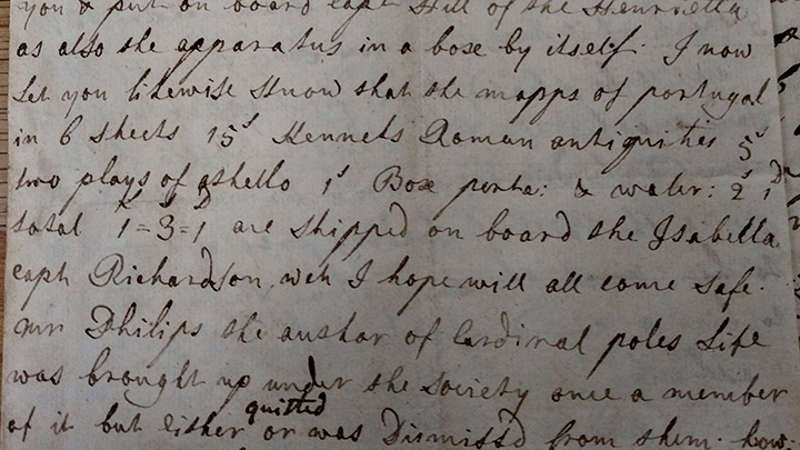 you & put on board capt Hill of the Henrietta
as also the apparatus in a boxe by itself. I now
Let you likewise Know that the mapps of portugal
in 6 sheets 15s Kennets Roman antiquities 5s
two plays of othello 1s Box porta: & water: 2s 1D
total 1=3=1 are shipped on board the Isabella
capt Richardson wch I hope will all come safe.
Mr Philips the author of Cardinal poles Life
was brought up under the Society once a member
quitted
of it but either or was Dismiss'd from them. how: